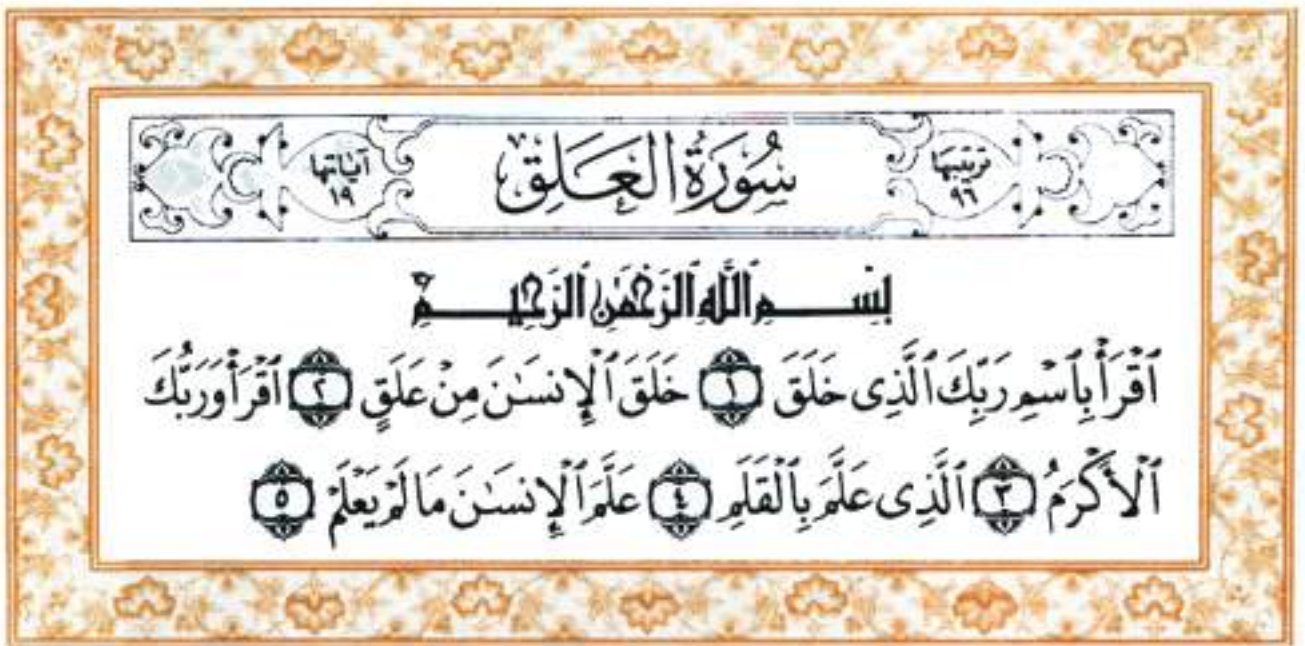 ترتيبها
٩٦
سُورَةُ العَلَق
آياتها
١٩
بِسْمِ ٱللَّهِ ٱلرَّحْمَٰنِ ٱلرَّحِيمِ
ٱقْرَأْ بِٱسْمِ رَبِّكَ ٱلَّذِى خَلَقَ ١ خَلَقَ ٱلْإِنسَٰنَ مِنْ عَلَقٍ ٢ ٱقْرَأْ وَرَبُّكَ
ٱلْأَكْرَمُ ٣ ٱلَّذِى عَلَّمَ بِٱلْقَلَمِ ٤ عَلَّمَ ٱلْإِنسَٰنَ مَا لَمْ يَعْلَمْ ٥